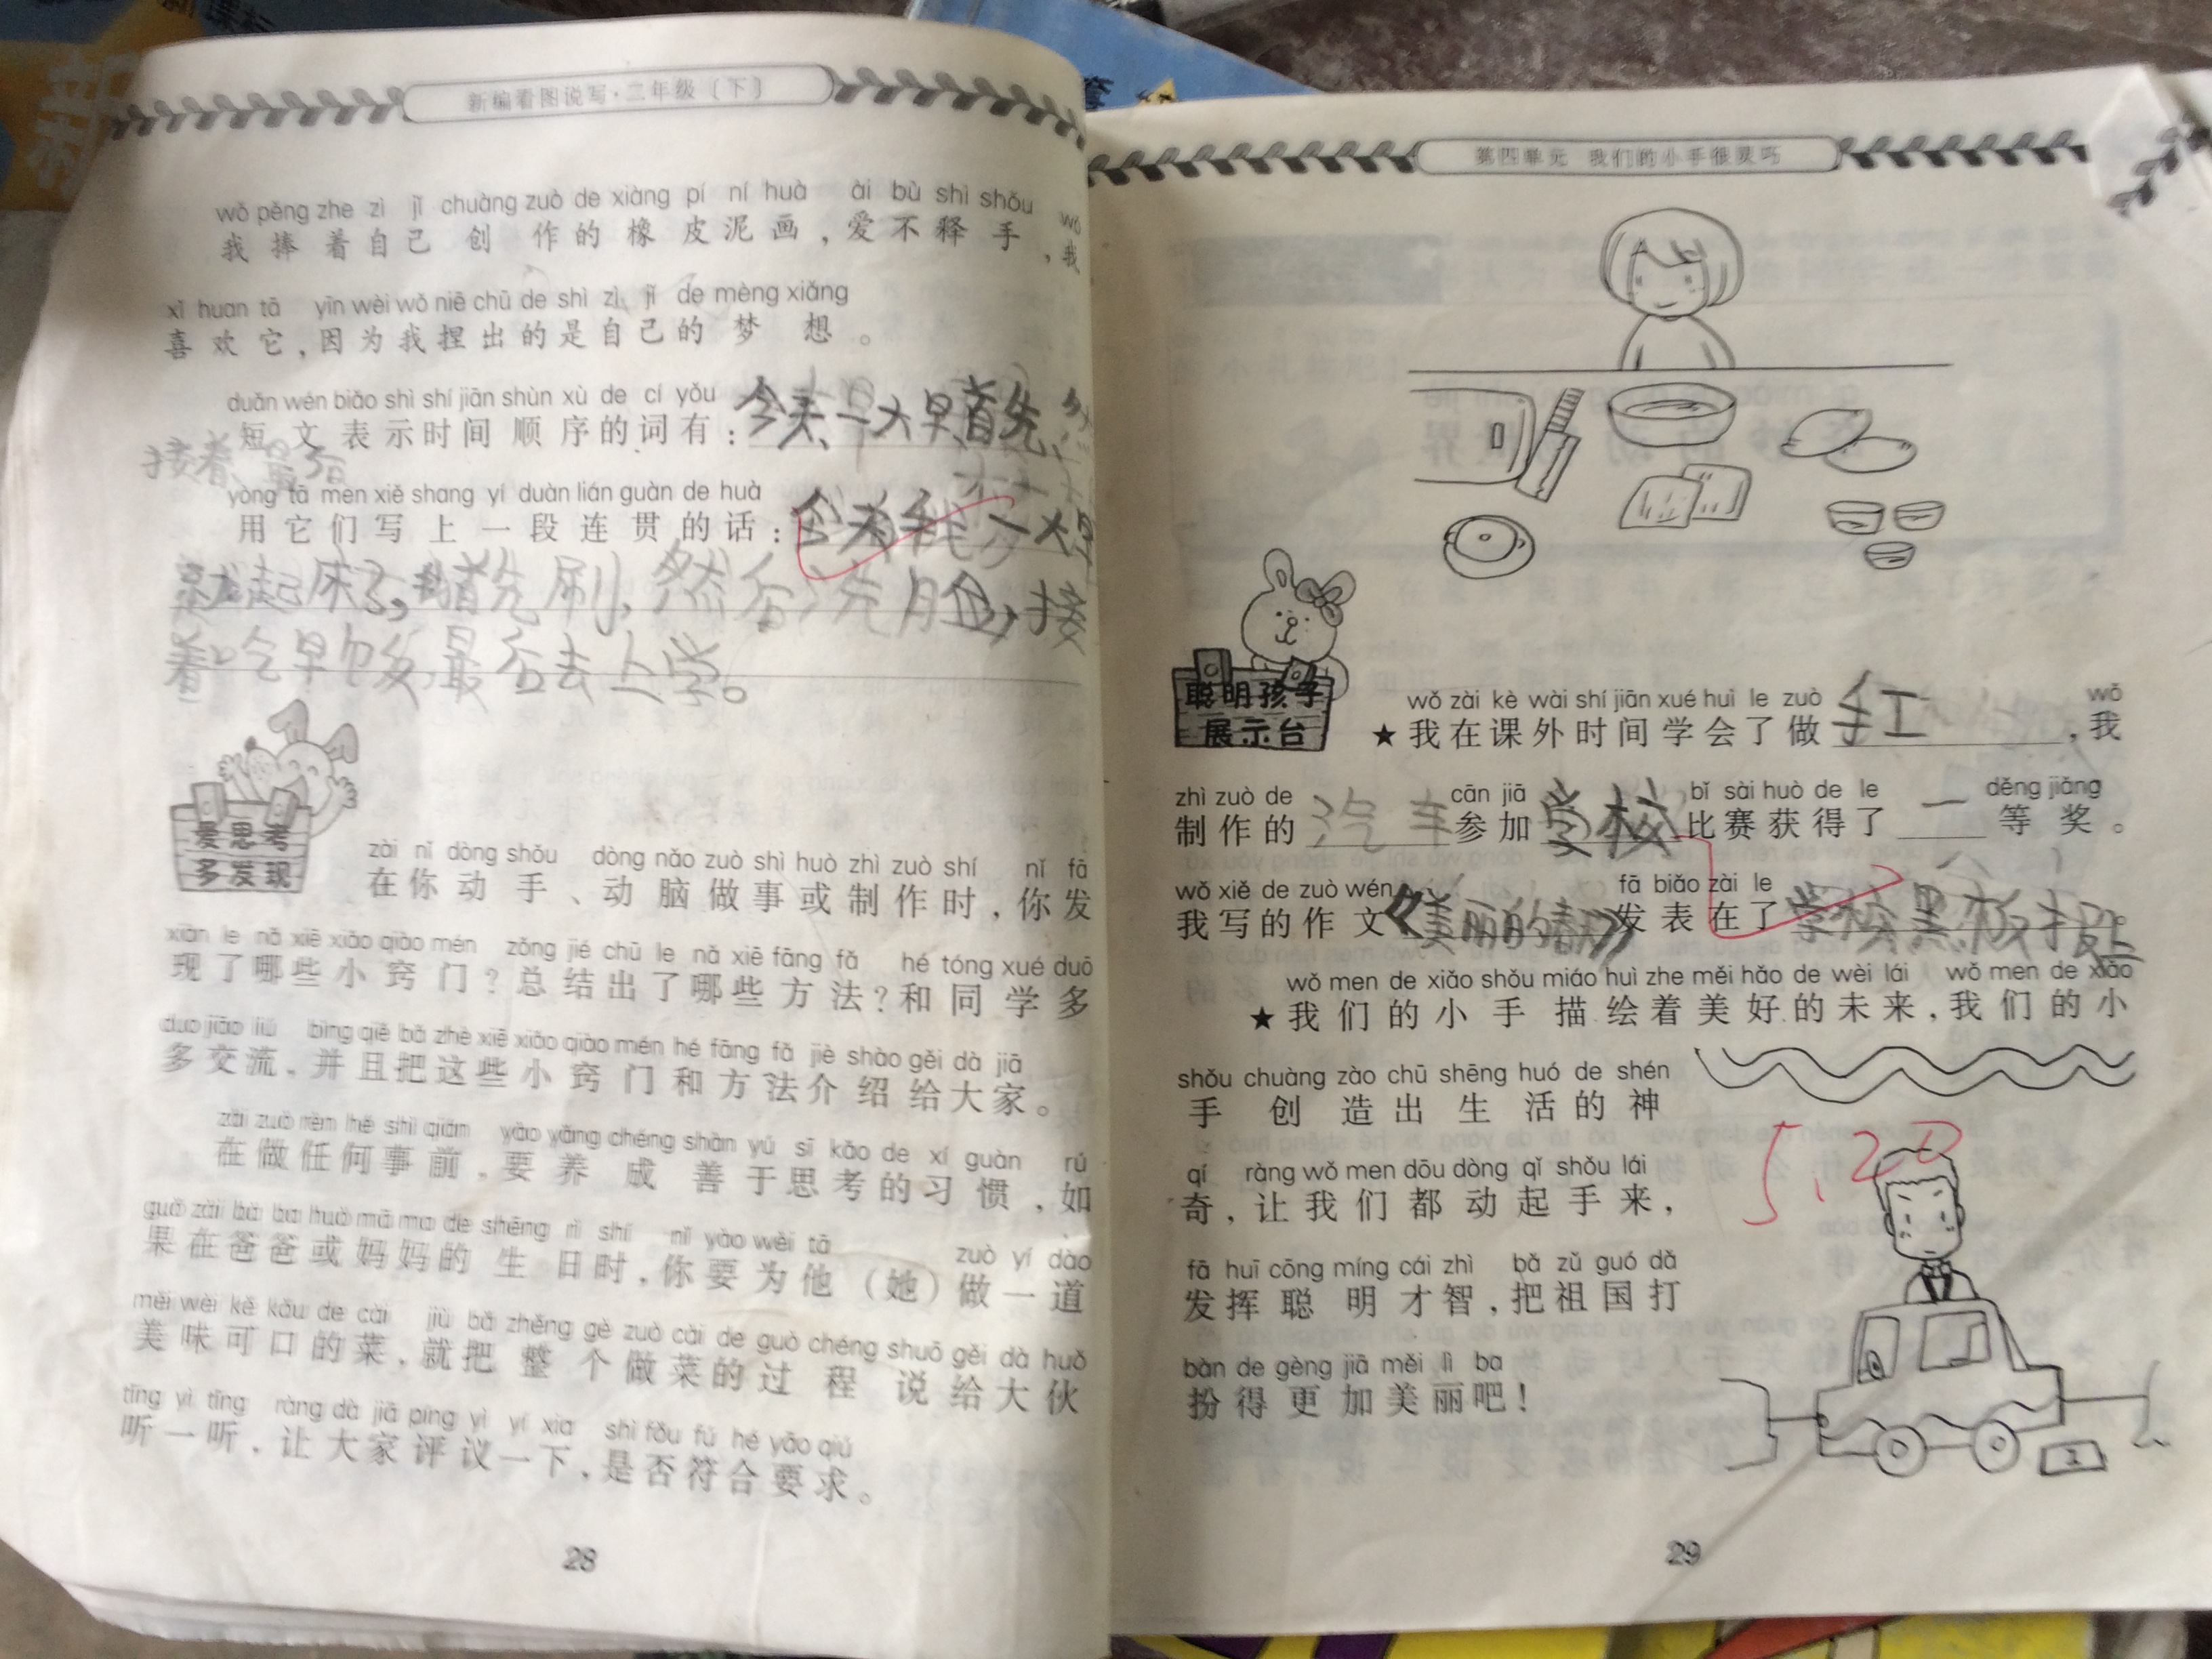 新编看图说写·二年级(下)
wǒ pěng zhe zì jǐ chuàng zuò de xiàng pí ní huà ài bù shì shǒu wǒ
我捧着自己创作的橡皮泥画,爱不释手,我
xǐ huan tā yīn wèi wǒ niē chū de shì zì jǐ de mèng xiǎng
喜欢它,因为我捏出的是自己的梦想。
duǎn wén biǎo shì shí jiān shùn xù de cí yǒu
短文表示时间顺序的词有:今天、一大早、首先、
接着 最后
yòng tā men xiě shang yí duàn lián guàn de huà
用它们写上一段连贯的话:今天我一大早
就起床了,我首先刷,然后洗脸,接
着吃早饭,最后去上学。
爱思考
多发现
zài nǐ dòng shǒu dòng nǎo zuò shì huò zhì zuò shí nǐ fā
在你动手、动脑做事或制作时,你发
xiàn le nǎ xiē xiǎo qiào mén zǒng jié chū le nǎ xiē fāng fǎ hé tóng xué duō
现了哪些小窍门?总结出了哪些方法?和同学多
duō jiāo liú bìng qiě bǎ zhè xiē xiǎo qiào mén hé fāng fǎ jiè shào gěi dà jiā
多交流,并且把这些小窍门和方法介绍给大家。
zài zuò rèn hé shì qián yào yǎng chéng shàn yú sī kǎo de xí guàn rú
在做任何事前,要养成善于思考的习惯,如
guǒ zài bà ba huò mā ma de shēng rì shí nǐ yào wèi tā zuò yí dào
果在爸爸或妈妈的生日时,你要为他(她)做一道
měi wèi kě kǒu de cài jiù bǎ zhěng gè zuò cài de guò chéng shuō gěi dà huǒ
美味可口的菜,就把整个做菜的过程说给大伙
tīng yì tīng ràng dà jiā píng yì yí xia shì fǒu fú hé yāo qiú
听一听,让大家评议一下,是否符合要求。
28
第四单元 我们的小手很灵巧
聪明孩子
展示台
wǒ zài kè wài shí jiān xué huì le zuò wǒ
★我在课外时间学会了做手工,我
zhì zuò de cān jiā bǐ sài huò de le děng jiǎng
制作的汽车参加学校比赛获得了一等奖。
wǒ xiě de zuò wén fā biǎo zài le
我写的作文《美丽的春》发表在了学校黑板报上
wǒ men de xiǎo shǒu miáo huì zhe měi hǎo de wèi lái wǒ men de xiǎo
★我们的小手描绘着美好的未来,我们的小
shǒu chuàng zào chū shēng huó de shén
手创造出生活的神
qí ràng wǒ men dōu dòng qǐ shǒu lái
奇,让我们都动起手来,
5.20
fā huī cōng míng cái zhì bǎ zǔ guó dǎ
发挥聪明才智,把祖国打
bàn de gèng jiā měi lì ba
扮得更加美丽吧!
29